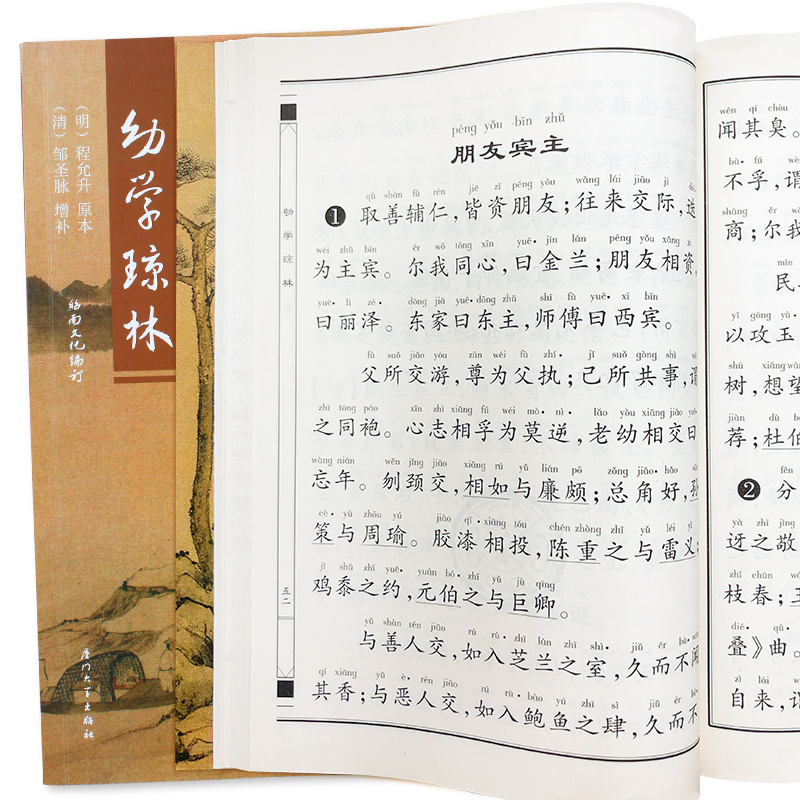 幼学琼林
（明）程允升 原本
（清）邹圣脉 增补
鹭南文化编订
厦门大学出版社
幼学琼林
五二
péng yǒu bīn zhǔ
朋友宾主
qǔ shàn fǔ rén jiē zī péng yǒu wǎng lái jiāo jì
❶ 取善辅仁，皆资朋友；往来交际，迭
wéi zhǔ bīn ěr wǒ tóng xīn yuē jīn lán péng yǒu xiāng zī
为主宾。尔我同心，曰金兰；朋友相资，
yuē lì zé dōng jiā yuē dōng zhǔ shī fù yuē xī bīn
曰丽泽。东家曰东主，师傅曰西宾。
fù suǒ jiāo yóu zūn wéi fù zhí jǐ suǒ gòng shì wèi
父所交游，尊为父执；己所共事，谓
zhī tóng páo xīn zhì xiāng fú wéi mò nì lǎo yòu xiāng jiāo yuē
之同袍。心志相孚为莫逆，老幼相交曰
wàng nián wěn jǐng jiāo xiàng rú yǔ lián pō zǒng jiǎo hǎo sūn
忘年。刎颈交，相如与廉颇；总角好，孙
cè yǔ zhōu yú jiāo qī xiāng tóu chén zhòng zhī yǔ léi yì
策与周瑜。胶漆相投，陈重之与雷义；
jī shǔ zhī yuē yuán bó zhī yǔ jù qīng
鸡黍之约，元伯之与巨卿。
yǔ shàn rén jiāo rú rù zhī lán zhī shì jiǔ ér bù wén
与善人交，如入芝兰之室，久而不闻
qí xiāng yǔ è rén jiāo rú rù bào yú zhī sì jiǔ ér bù
其香；与恶人交，如入鲍鱼之肆，久而不
wén qí chòu
闻其臭。
bù fú wèi
不孚，谓
shāng ěr
商；尔我
mín
民
yǐ gōng yù
以攻玉
shù xiǎng wàng
树，想望
jiàn dù bó
荐；杜伯
fēn
❷ 分
yà zhī jìng
迓之敬
zhī chūn
枝春；王
dié qǔ
叠》曲。
zì lái wèi
自来，谓